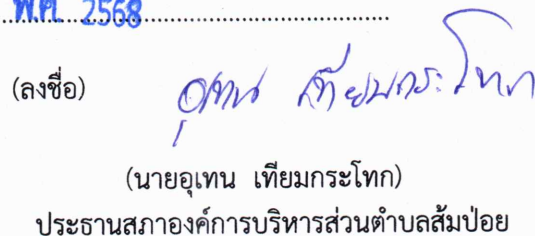 พ.ศ. 2568
(ลงชื่อ) อุเทน เทียมกระโทก
(นายอุเทน เทียมกระโทก)
ประธานสภาองค์การบริหารส่วนตำบลส้มป่อย